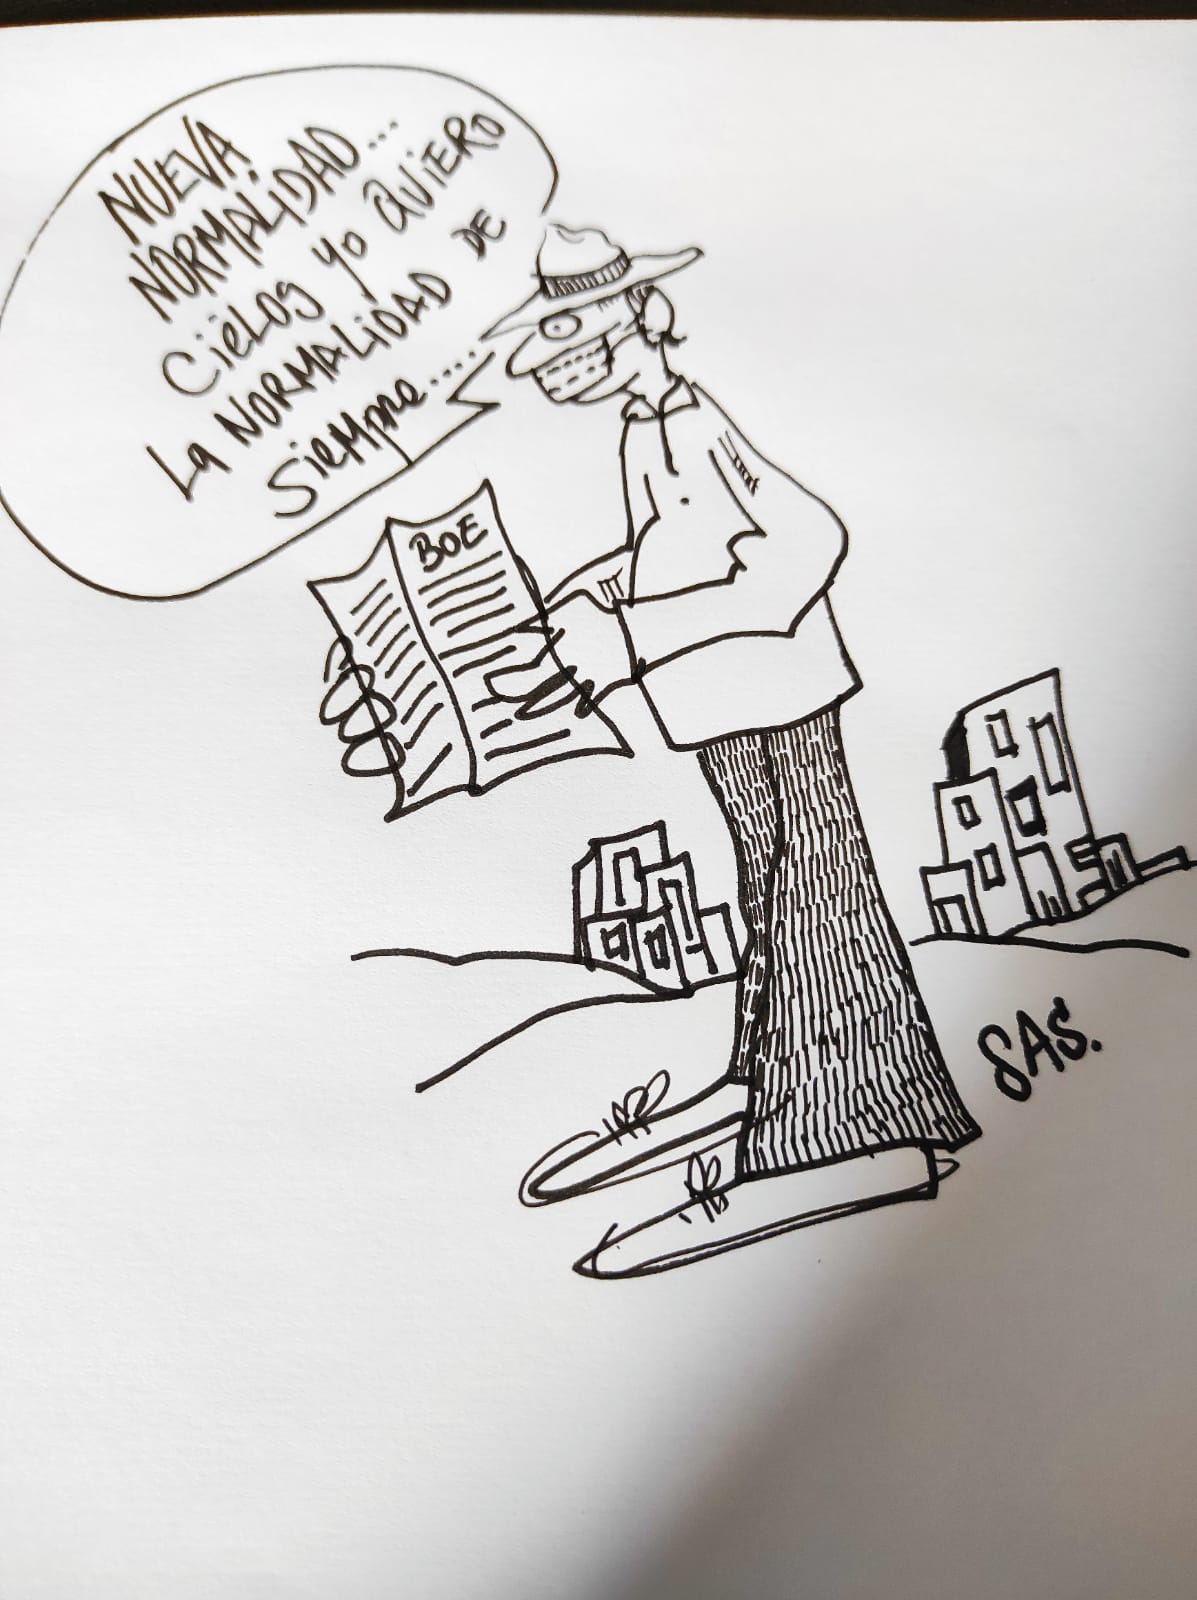 NUEVA
NORMALIDAD...
CiELOS yo QUiERO
La NORMALiDAD DE
Siempre....
BOE
SAS.